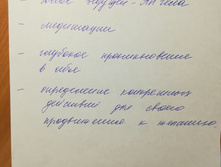 - медитации
- глубокое проникновение
в себя
- определение конкретных
действий для своего
продвижения к